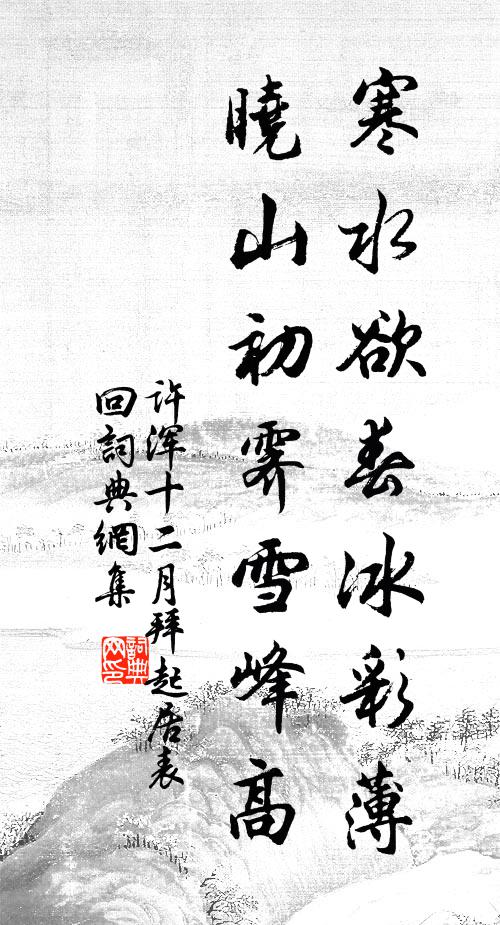 寒水欲春冰彩薄
曉山初霽雪峰高
许渾十二月拜起居表
回詞典網集
詞典
网印